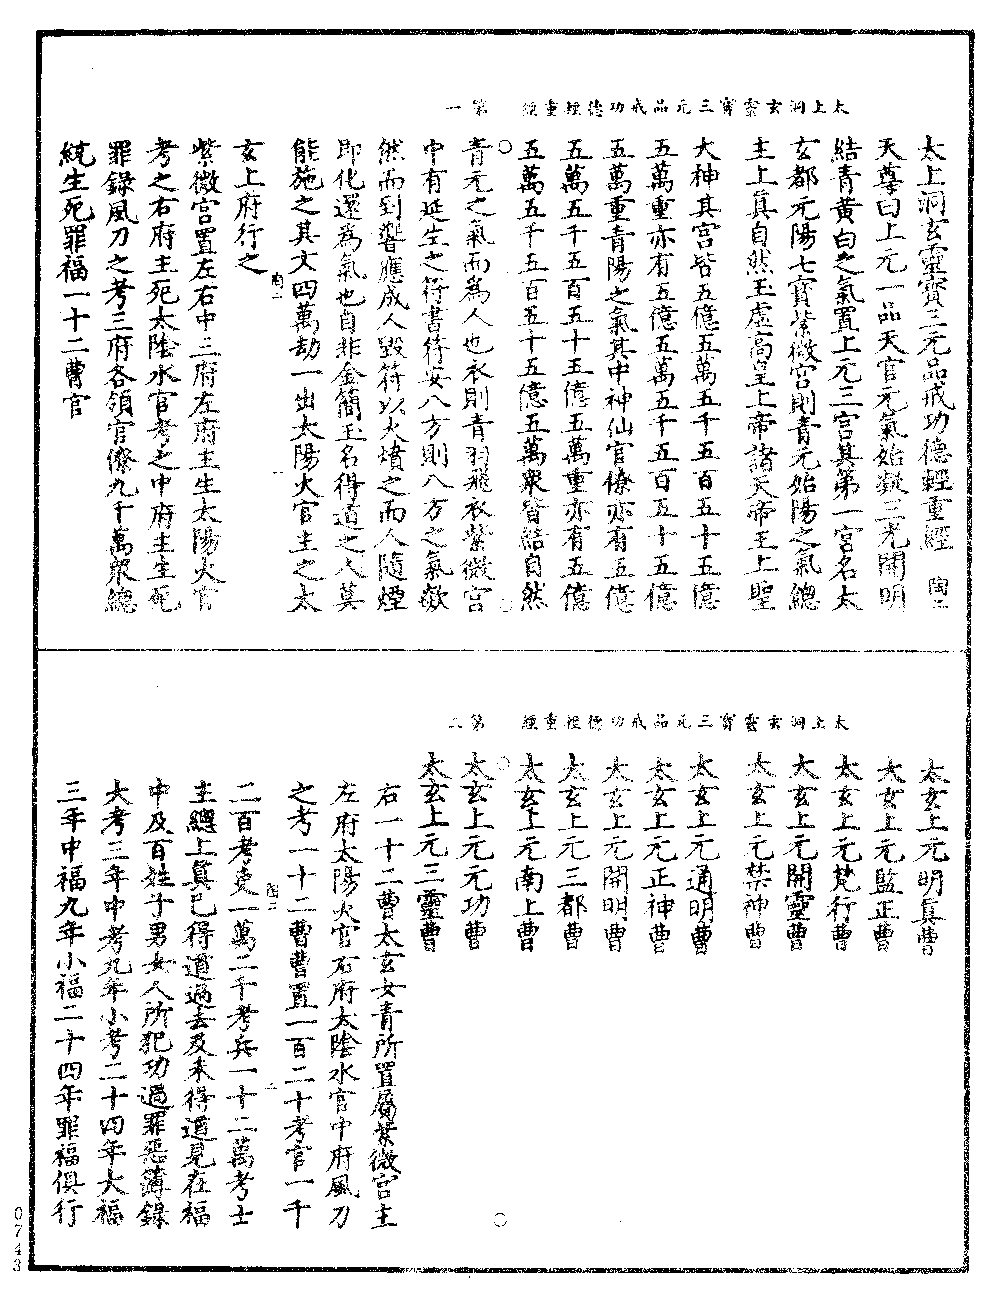 太上洞玄靈寶三元品戒功德輕重經　第一
太上洞玄靈寶三元品戒功德輕重經　陶一
天尊曰上元一品天官元氣始凝三光開明
結青黃白之氣置上元三宮其第一宮名太
玄都元陽七寶紫微宮則青元始陽之氣總
主上真自然玉虛高皇上帝諸天帝王上聖
大神其宮皆五億五萬五千五百五十五億
五萬重亦有五億五萬五千五百五十五億
五萬重青陽之氣其中神仙官僚亦有五億
五萬五千五百五十五億五萬重亦有五億
五萬五千五百五十五億五萬眾皆結自然
青元之氣而為人也衣則青羽飛衣紫微宮
中有延生之符書符安八方則八方之氣欻
然而到響應成人毀符以火燌之而人隨煙
即化還為氣也自非金簡玉名得道之人莫
能施之其文四萬劫一出太陽火官主之太
玄上府行之
陶一
紫微宮置左右中三府左府主生太陽火官
考之右府主死太陰水官考之中府主生死
罪錄風刀之考三府各領官僚九千萬眾總
統生死罪福一十二曹官
太上洞玄靈寶三元品戒功德輕重經　第二
太玄上元明真曹
太玄上元監正曹
太玄上元梵行曹
太玄上元開靈曹
太玄上元禁神曹
太玄上元通明曹
太玄上元正神曹
太玄上元開明曹
太玄上元三都曹
太玄上元南上曹
太玄上元元功曹
太玄上元三靈曹
右一十二曹太玄女青所置屬紫微宮主
左府太陽火官右府太陰水官中府風刀
之考一十二曹曹置一百二十考官一千
二百考吏一萬二千考兵一十二萬考士
陶二
主總上真已得道過去及未得道見在福
中及百姓子男女人所犯功過罪惡簿錄
大考三年中考九年小考二十四年大福
三年中福九年小福二十四年罪福俱行
0743